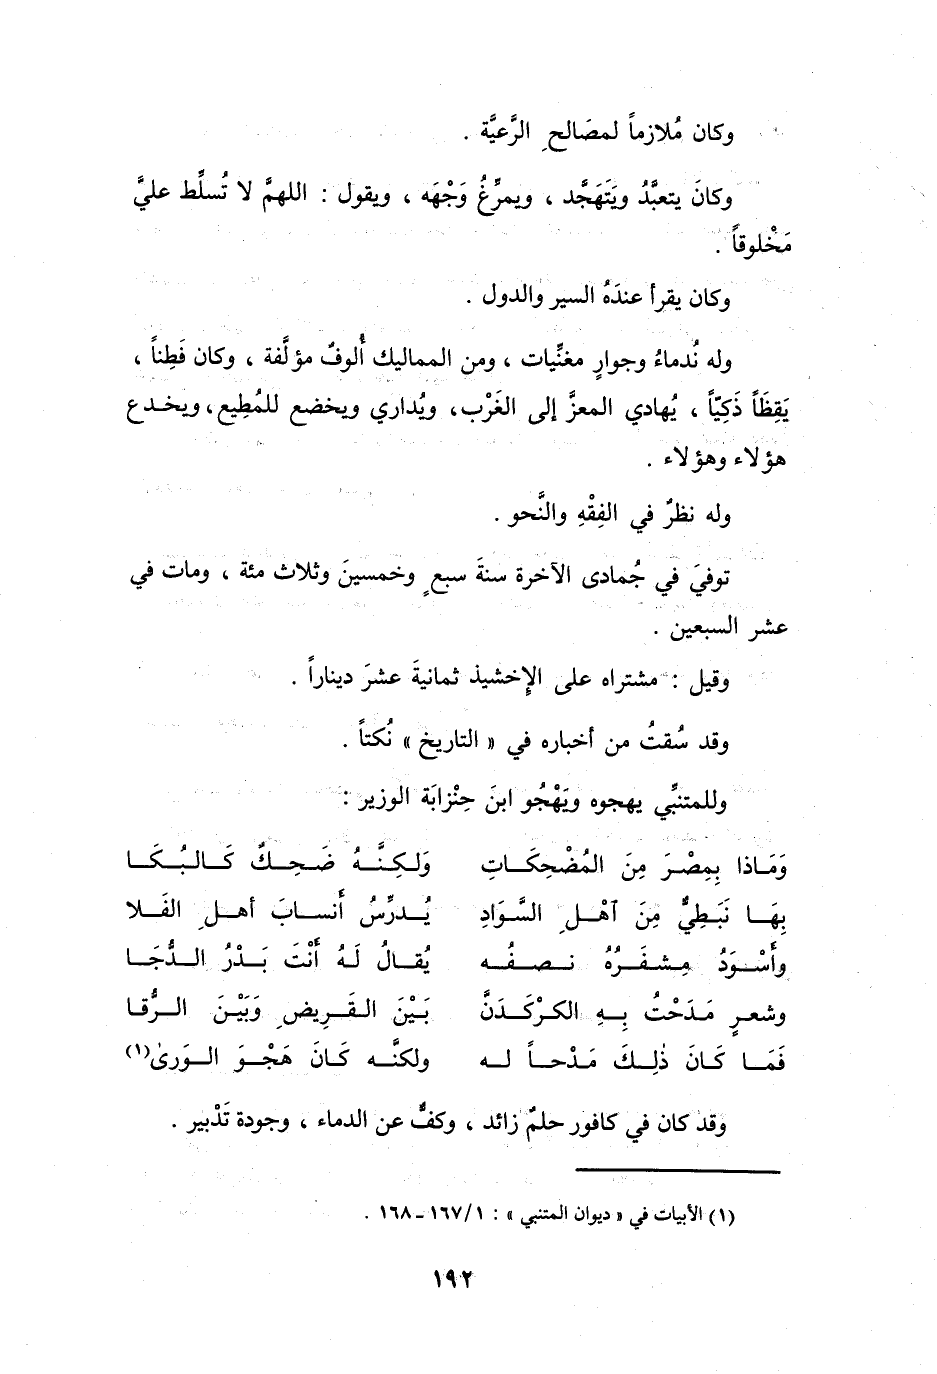 وكان مُلازماً لمصَالحِ الرَّعيَّة .
وكانَ يتعبَّدُ ويَتَهَجَّد ، ويمرِّغُ وَجْهَه ، ويقول : اللهمَّ لا تُسلِّط عليَّ
مَخْلوقاً .
وكان يقرأ عندَهُ السير والدول .
وله نُدماءُ وجوارٍ مغنِّيات ، ومن المماليك أُلوفٌ مؤلَّفة ، وكان فَطِناً ،
يَقِظَاً ذَكِيّاً ، يُهادي المعزَّ إلى الغَرْب، ويُداري ويخضع للمُطِيع، ويخدع
هؤلاء وهؤلاء .
وله نظرٌ في الفِقْهِ والنَّحو .
توفيَ في جُمادى الآخرة سنةَ سبعٍ وخمسينَ وثلاث مئة ، ومات في
عشر السبعين .
وقيل : مشتراه على الإخشيذ ثمانيةَ عشرَ ديناراً .
وقد سُقتُ من أخباره في « التاريخ » نُكتاً .
وللمتنبِّي يهجوه ويَهْجُو ابنَ حِنْزابَة الوزير :
وَمَاذا بِمِصْرَ مِنَ المُضْحِكَاتِ وَلَكِنَّهُ ضَحِكٌ كَالبُكَا
بِهَا نَبَطِيٌّ مِنَ آهْلِ السَّوَادِ يُدرِّسُ أَنسابَ أهلِ الفَلا
وأَسْوَدُ مِشفَرُهُ نصفُه يُقالُ لَهُ أَنْتَ بَدْرُ الدُّجَا
وشعرٍ مَدَحْتُ بِهِ الكرْكَدَنَّ بَيْنَ القَرِيضِ وَبَيْنَ الرُّقا
فَمَا كَانَ ذٰلِكَ مَدْحاً له ولكنَّه كَانَ هَجْوَ الوَرىٰ(١)
وقد كان في كافور حلمٌ زائد ، وكفٌّ عن الدماء ، وجودة تَدْبير .
(١) الأبيات في « ديوان المتنبي » : ١٦٧/١ ـ ١٦٨ .
١٩٢